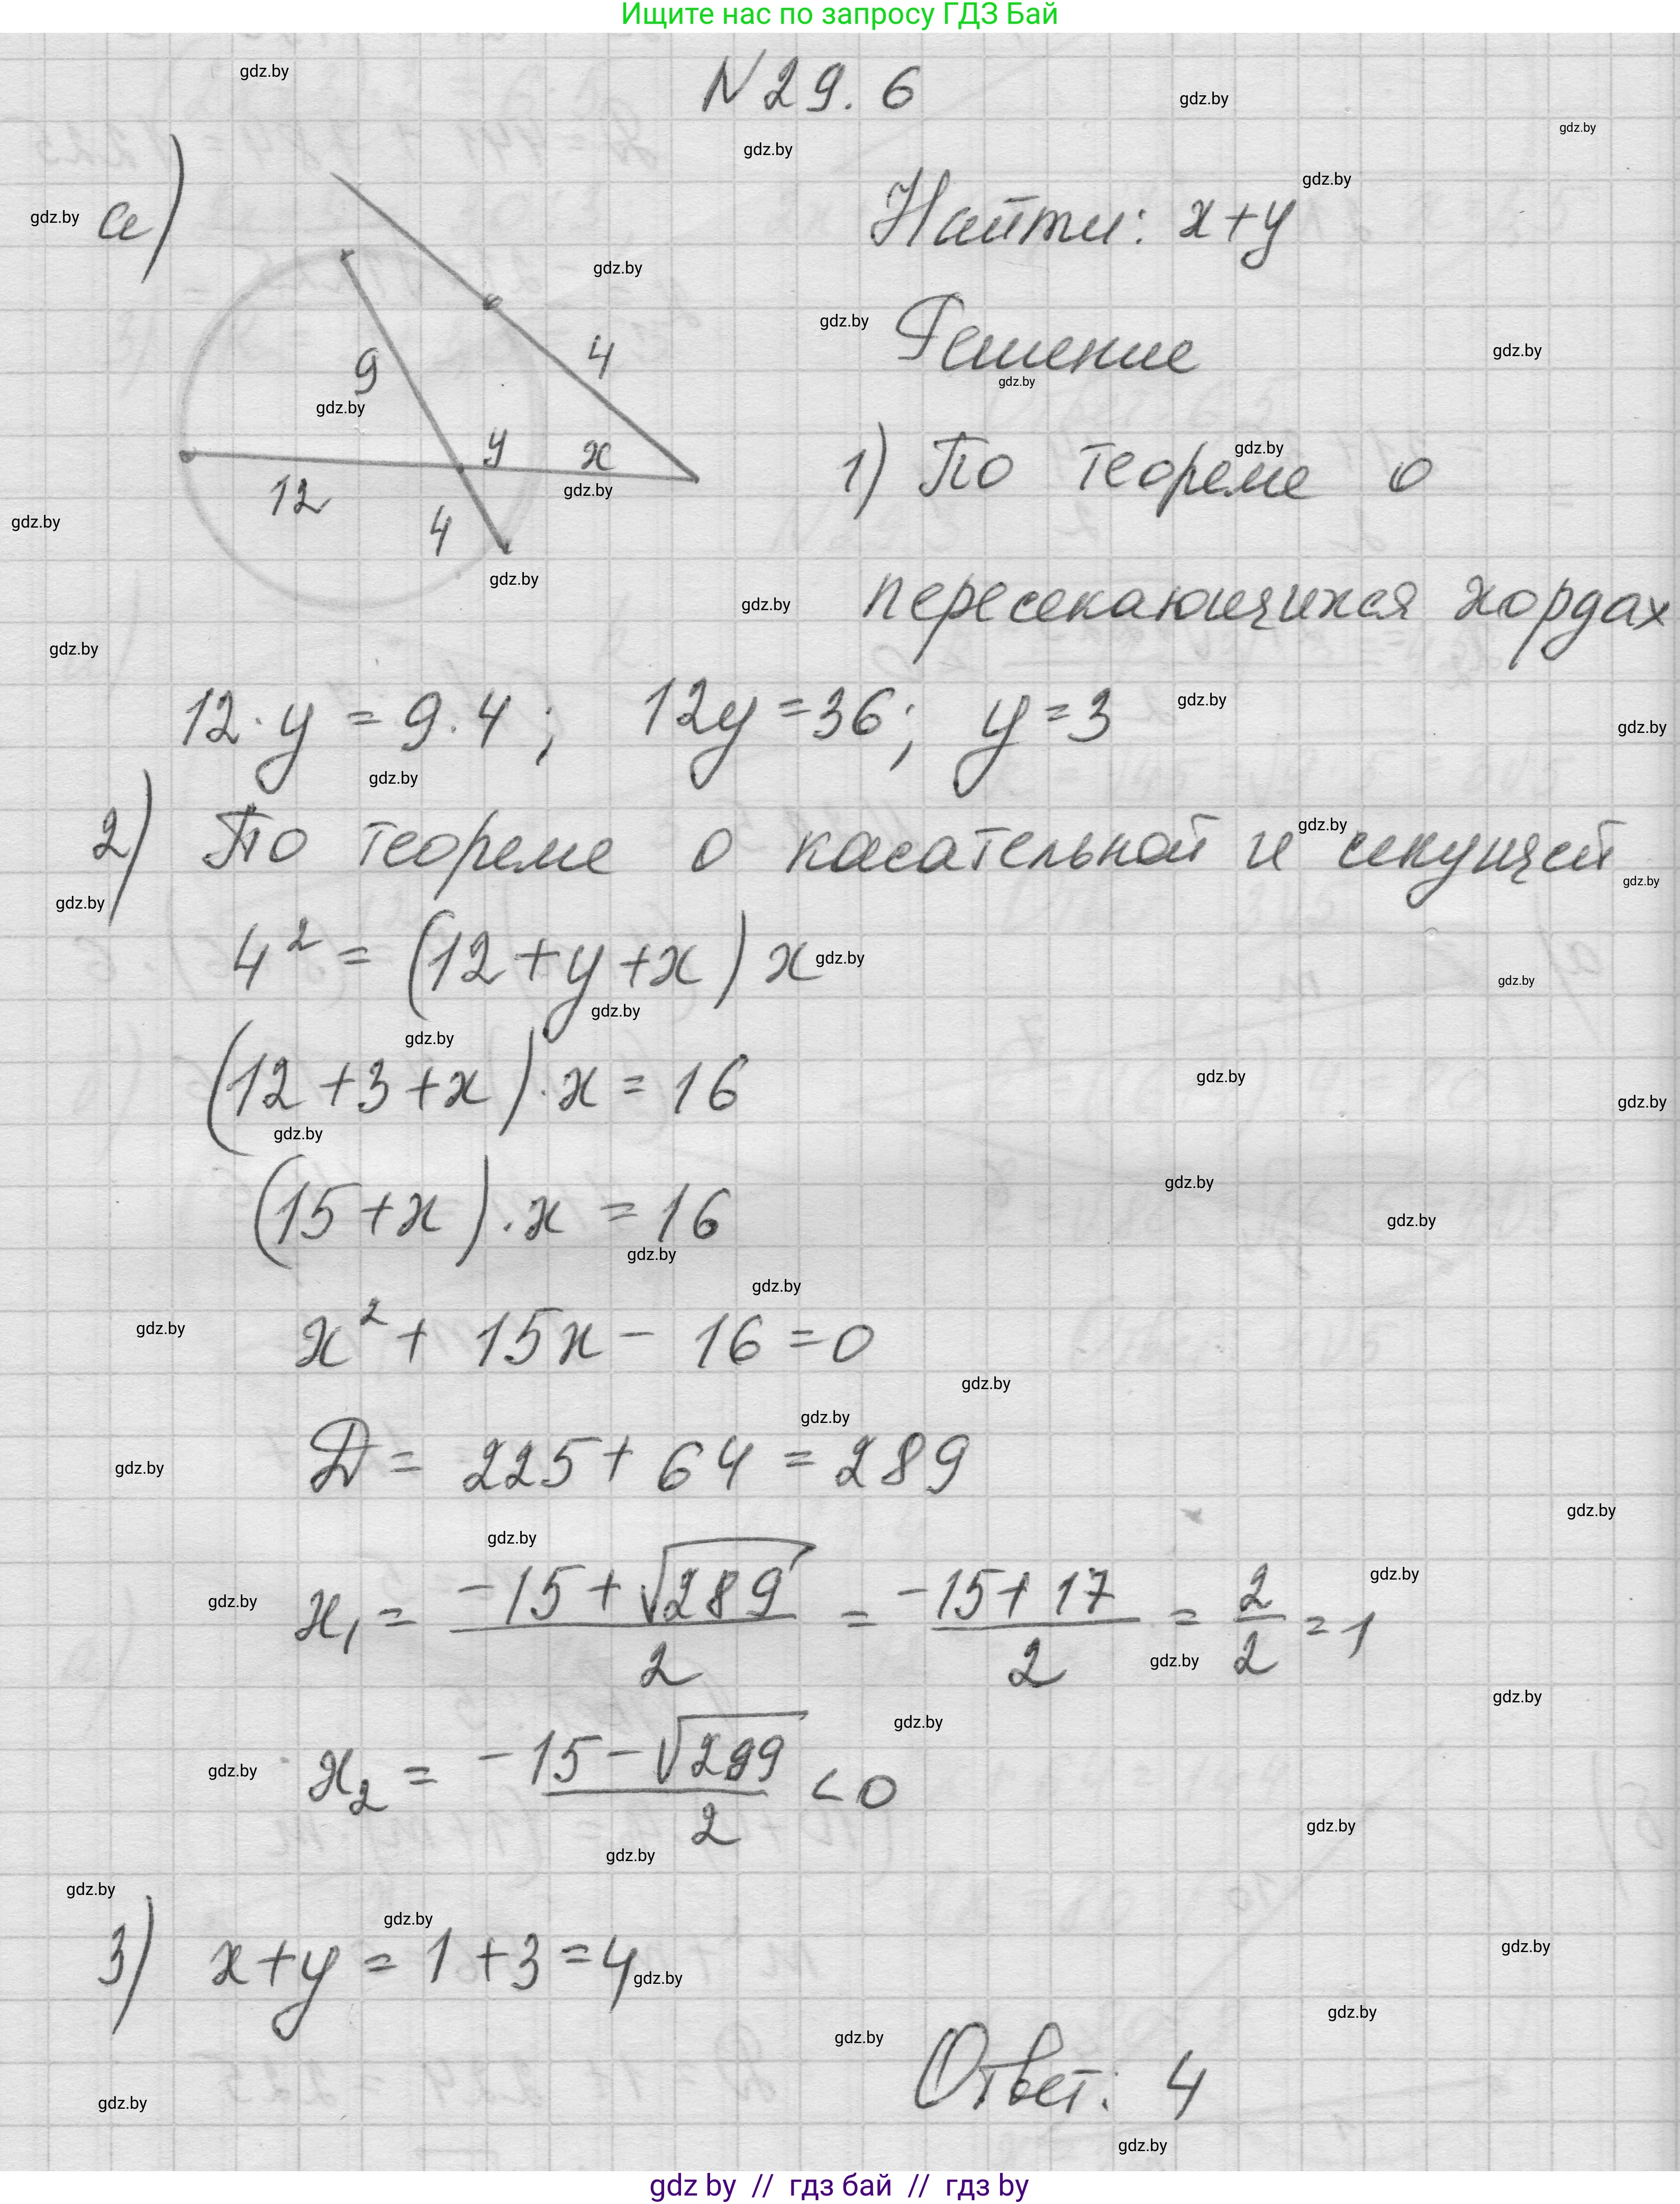 Ищите нас по запросу ГДЗ Бай
gdz.by
N 29. 6
gdz.by
gdz.by
gdz.by
gdz.by
gdz.by а)
Найти: x+y
gdz.by
gdz.by
Решение
gdz.by
gdz.by
9
4
gdz.by
gdz.by
1) По теореме о
y
x
12
gdz.by
4
gdz.by
gdz.by
пересекающихся хордах
gdz.by
gdz.by
12·y = 9·4 ; 12y = 36; y = 3
gdz.by
gdz.by
gdz.by
2) По теореме о касательной и секущей
gdz.by
gdz.by
gdz.by
4² = (12 + y + x) x
gdz.by
gdz.by
gdz.by
gdz.by
(12 + 3 + x)·x = 16
gdz.by
gdz.by
gdz.by
(15 + x)·x = 16
gdz.by
gdz.by
gdz.by
gdz.by
x² + 15x - 16 = 0
gdz.by
gdz.by
gdz.by
D = 225 + 64 = 289
gdz.by
gdz.by
gdz.by
x₁ = (-15 + √289)/2 = (-15 + 17)/2 = 2/2 = 1
gdz.by
gdz.by
gdz.by
gdz.by
gdz.by
x₂ = (-15 - √289)/2 < 0
gdz.by
gdz.by
gdz.by
gdz.by
gdz.by
3) x + y = 1 + 3 = 4
gdz.by
gdz.by
gdz.by
gdz.by
Ответ: 4
gdz.by
gdz.by
gdz by // гдз бай // gdz by